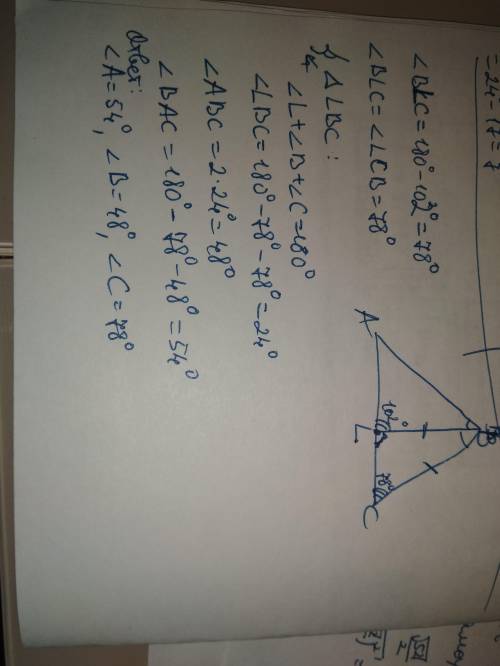 = 24 - 17 = 7
∠BLC = 180° - 102° = 78°
∠BLC = ∠LCB = 78°
△LBC:
∠L + ∠B + ∠C = 180°
∠LBC = 180° - 78° - 78° = 24°
∠ABC = 2 · 24° = 48°
∠BAC = 180° - 78° - 48° = 54°
Ответ:
∠A = 54°, ∠B = 48°, ∠C = 78°
B
A
102°
L
78°
C